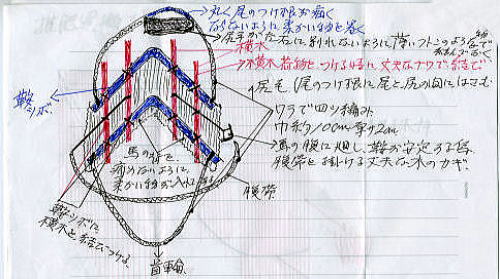 丸く尾のつけ根が痛く
ならないように柔かい物を巻く
尻毛が左右に割れないように薄いフトンのような
横木
横木荷物をつける時に丈夫なナワで結ぶ
尻毛(尾のつけ根に尾と尻の間にはさむ
ワラで四ツ編み
巾約10cm厚サ2cm
馬の腹に廻し、鞍が安定する様
腹帯を掛ける丈夫な木のカギ。
鞍ツボ
馬の背を
痛めないように
柔かい物が入れてある
腹帯
鞍ツボに
横木を結びつける
首輪